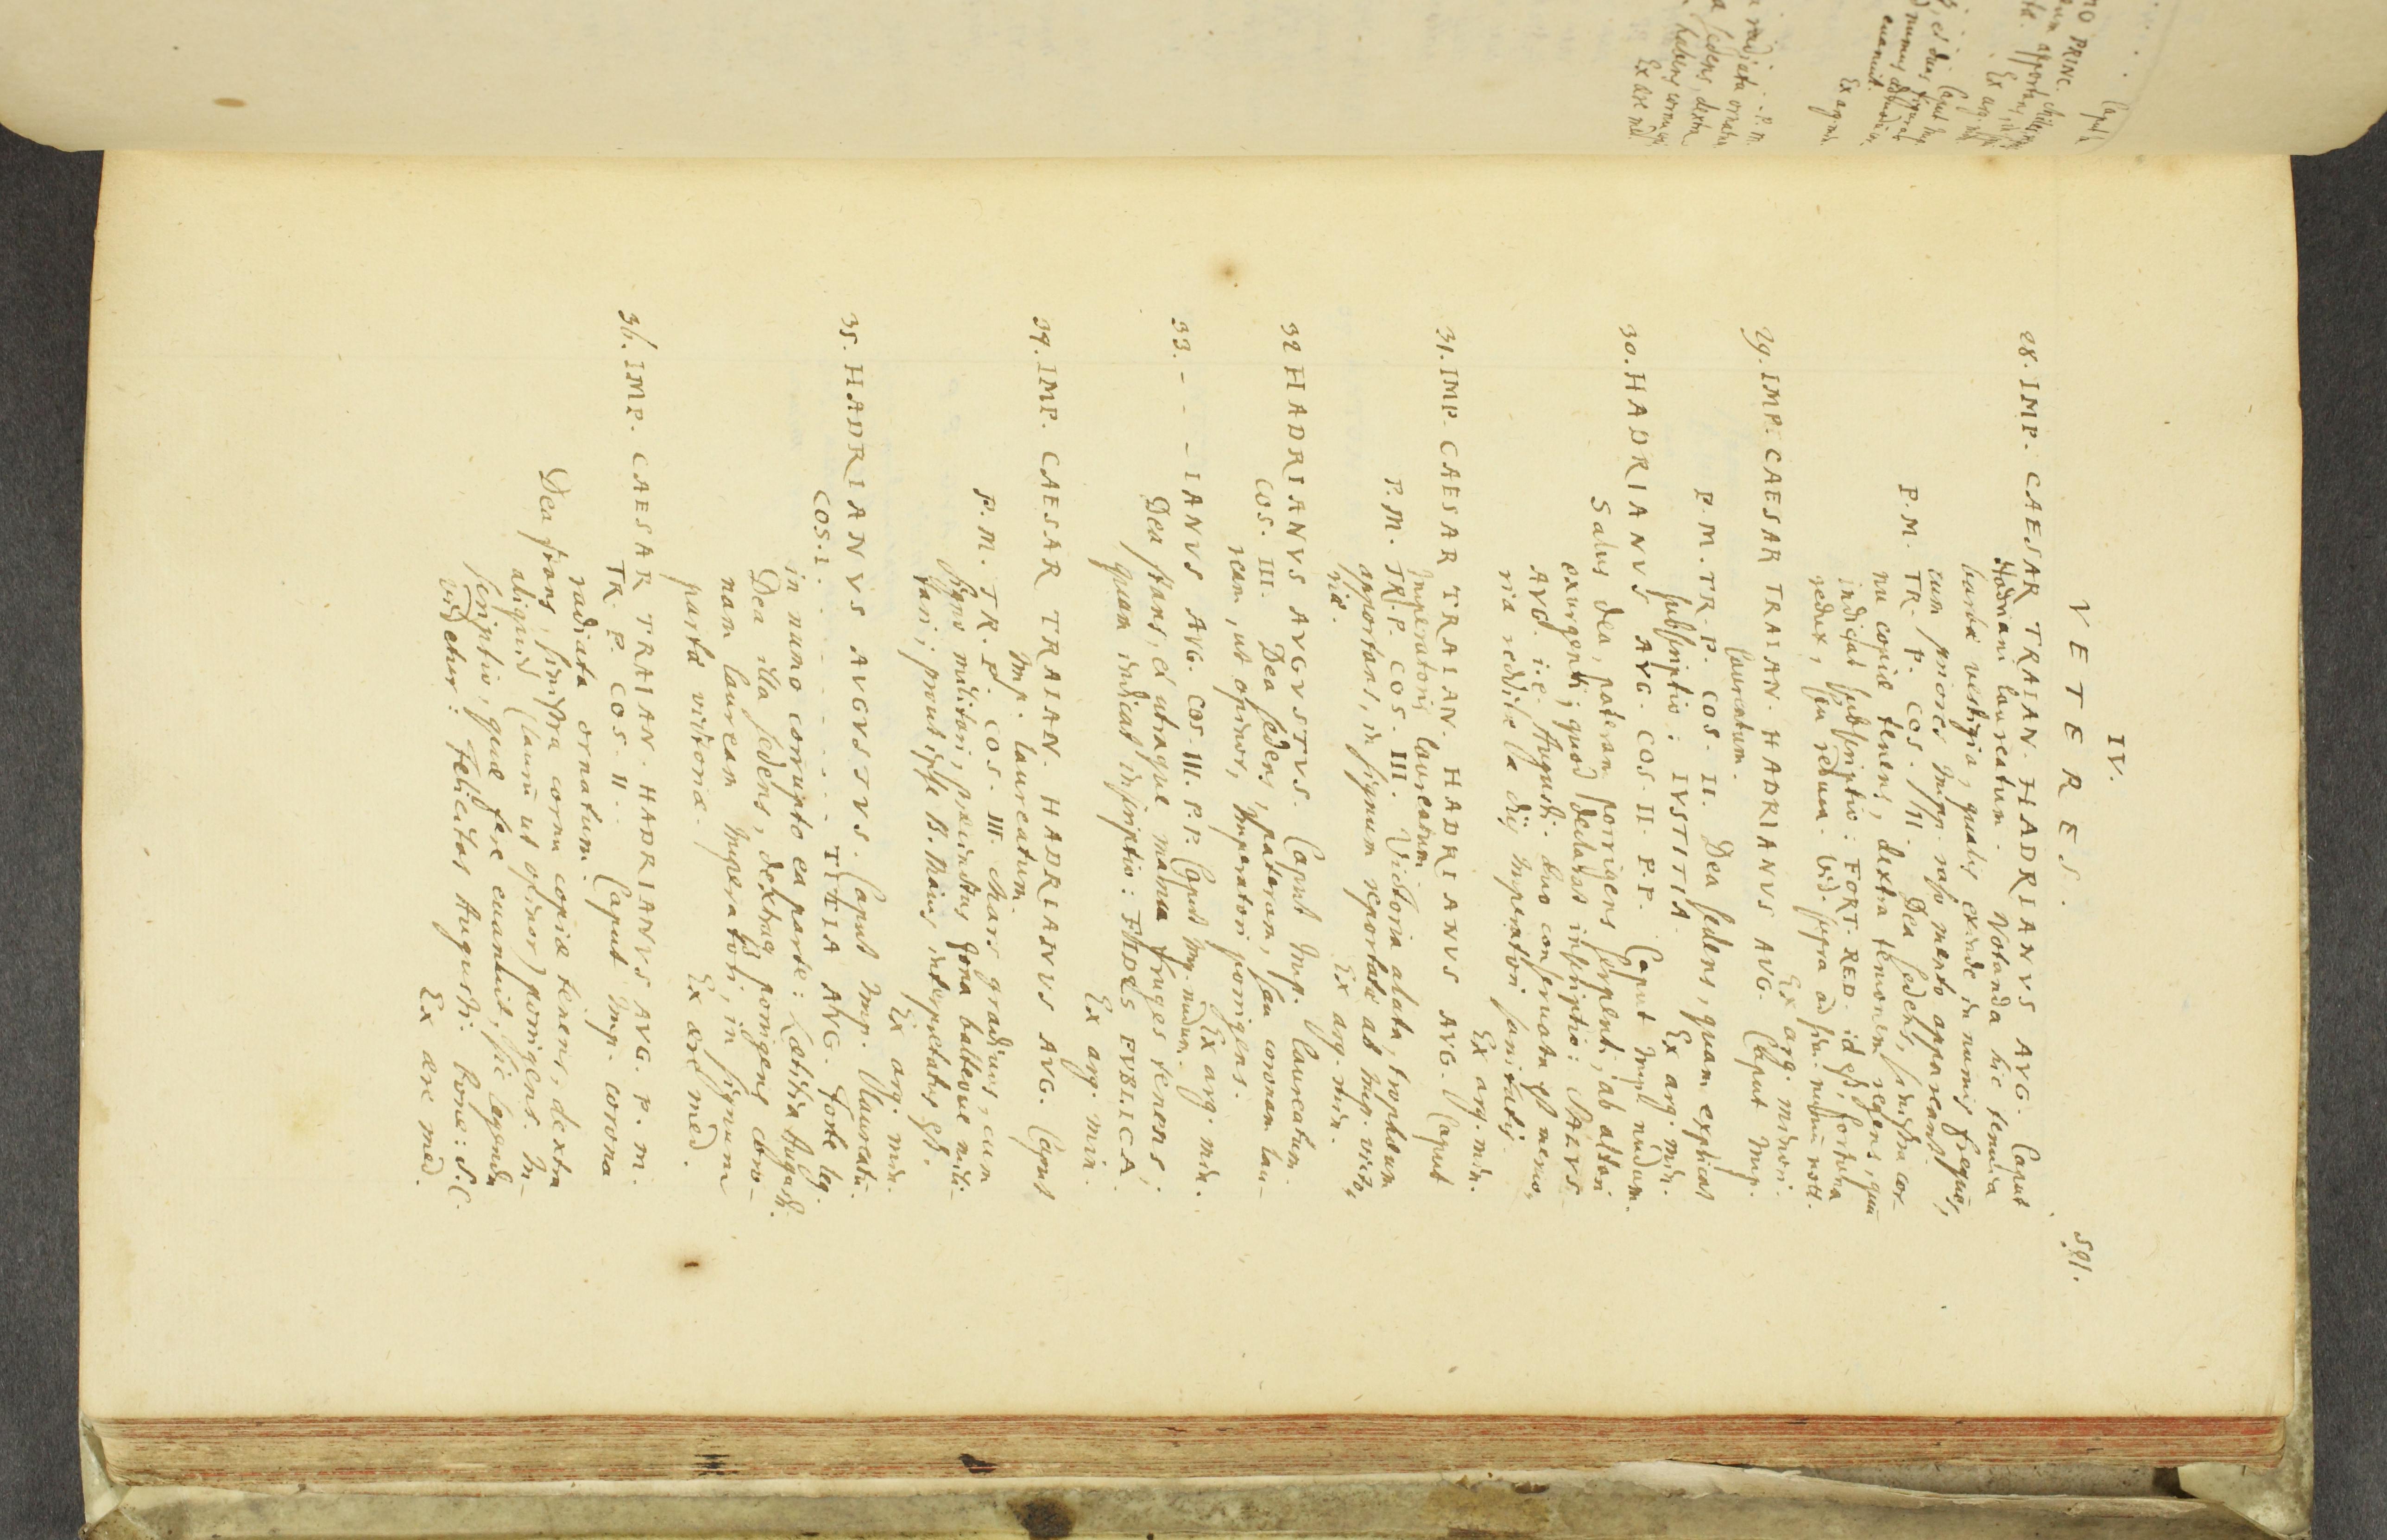 IV.
591.
VETERES.
28. IMP. CAESAR TRAIAN. HADRIANVS AVG. Caput
Hadriani laureatum. Notanda hic tenuia
barbæ vestigia, qualis exinde in numis frequens,
cum priores Impp. raso mento appareant.
P.M. TR. P. COS. III. Dea sedens, sinistra cor-
nu copiæ tenens, dextra temonem regens, quā
indicat subscriptio: FORT. RED. id est, fortuna
redux, seu redum. vid. supra ad
Ex arg. minori.
29. IMP. CAESAR TRAIAN. HADRIANVS AVG. Caput Imp.
laureatum.
P.M. TR. P. COS. II. Dea sedens, quam explicat
subscriptio: IVSTITIA.
Ex arg. min.
30. HADRIANVS AVG. COS. II. P.P. Caput Imp. nudum.
Salus dea, pateram porrigens serpenti, ab altari
exurgenti; quod declarat inscriptio: SALVS
AVG. i.e. Augusti. Quo conservata est memo-
ria redditæ a diis Imperatori sanitatis.
Ex arg. min.
31. IMP. CAESAR TRAIAN. HADRIANVS AVG. Caput
Imperatoris laureatum.
P.M. TR. P. COS. III. Victoria alata, trophæum
apportans, in signum reportatæ ab Imp. victo-
riæ.
Ex arg. min.
32 HADRIANVS AVGVSTVS. Caput Imp. laureatum.
COS. III. Dea sedens, pateram, seu coronam lau-
ream, ut opinor, Imperatori porrigens.
Ex arg. min.
33. - - - IANVS AVG. COS. III. P.P. Caput Imp. nudum.
Dea stans, et utraque manu fruges tenens;
quam indicat inscriptio: FIDES PVBLICA.
Ex arg. min.
34. IMP. CAESAR TRAIAN. HADRIANVS AVG. Caput
Imp. laureatum.
P.M. TR. P. COS. III. Mars gradivus, cum
signo militari, præcinctus zona balteove mili-
tari; prout ipse B. Thaius interpretatus est.
Ex arg. min.
35. HADRIANVS AVGVSTVS. Caput Imp. laureatū.
COS. I. - - - - - - - TITIA AVG. forte leg.
in numo corrupto ea parte: Lætitia Augusti.
Dea illa sedens, dextra porrigens coro-
nam lauream Imperatori, in signum
partæ victoriæ.
Ex ære med.
36. IMP. CAESAR TRAIAN. HADRIANVS AVG. P. M.
TR. P. COS. II. Caput Imp. corona
radiata ornatum.
Dea stans, sinistra cornu copiæ tenens, dextra
aliquid (laurū ut opinor) porrigens. In-
scriptio, quæ fere evanuit, sic legenda
videtur: Felicitas Augusti. Pone: S.C.
Ex ære med.